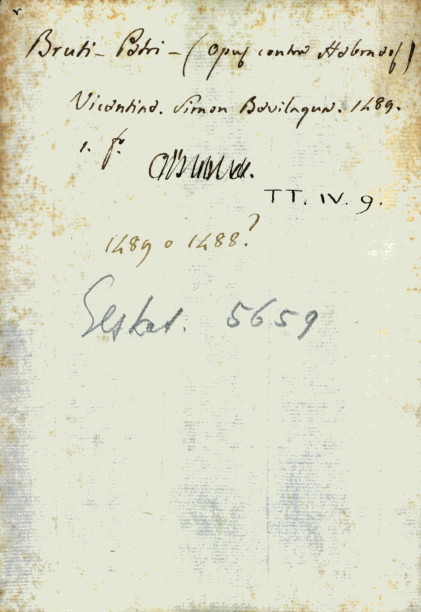 Bruti - Petri - (opus contra Hebraeos)
Vicentina. Simon Bevilaqua. 1489.
1. fo.
TT. IV. 9.
1489 o 1488?
Geskat. 5659